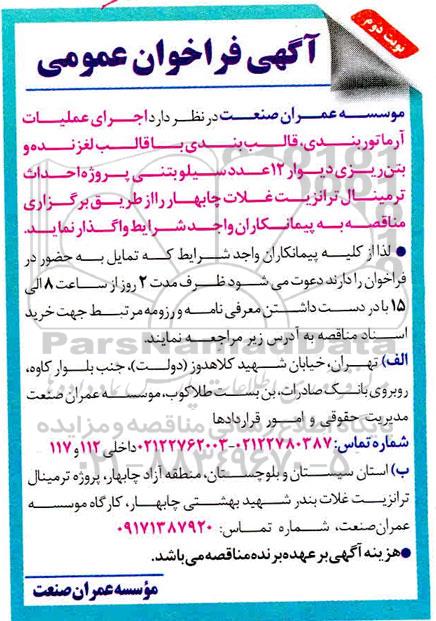 نوبت دوم
آگهی فراخوان عمومی
موسسه عمران صنعت در نظر دارد اجرای عملیات
آرماتوربندی، قالب بندی با قالب لغزنده و
بتن ریزی دیوار ۱۲ عدد سیلو بتنی پروژه احداث
ترمینال ترانزیت غلات چابهار را از طریق برگزاری
مناقصه به پیمانکاران واجد شرایط واگذار نماید.
● لذا از کلیه پیمانکاران واجد شرایط که تمایل به حضور در
فراخوان را دارند دعوت می شود ظرف مدت ۲ روز از ساعت ۸ الی
۱۵ با در دست داشتن معرفی نامه و رزومه مرتبط جهت خرید
اسناد مناقصه به آدرس زیر مراجعه نمایند.
الف) تهران، خیابان شهید کلاهدوز (دولت)، جنب بلوار کاوه،
روبروی بانک صادرات، بن بست طلاکوب، موسسه عمران صنعت
مدیریت حقوقی و امور قراردادها
شماره تماس: ۰۲۱۲۲۷۸۰۳۸۷-۰۲۱۲۲۷۶۲۰۰۳ داخلی ۱۱۲ و ۱۱۷
ب) استان سیستان و بلوچستان، منطقه آزاد چابهار، پروژه ترمینال
ترانزیت غلات بندر شهید بهشتی چابهار، کارگاه موسسه
عمران صنعت، شماره تماس: ۰۹۱۷۱۳۸۷۹۲۰
● هزینه آگهی بر عهده برنده مناقصه می باشد.
مؤسسه عمران صنعت
ParsNamadData
۰۲۱-۸۸۳۴۹۶۷۰-۵